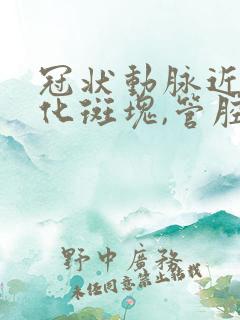 冠状動脉近
化斑塊,管腔
野中廣務
未任同意禁止轉載